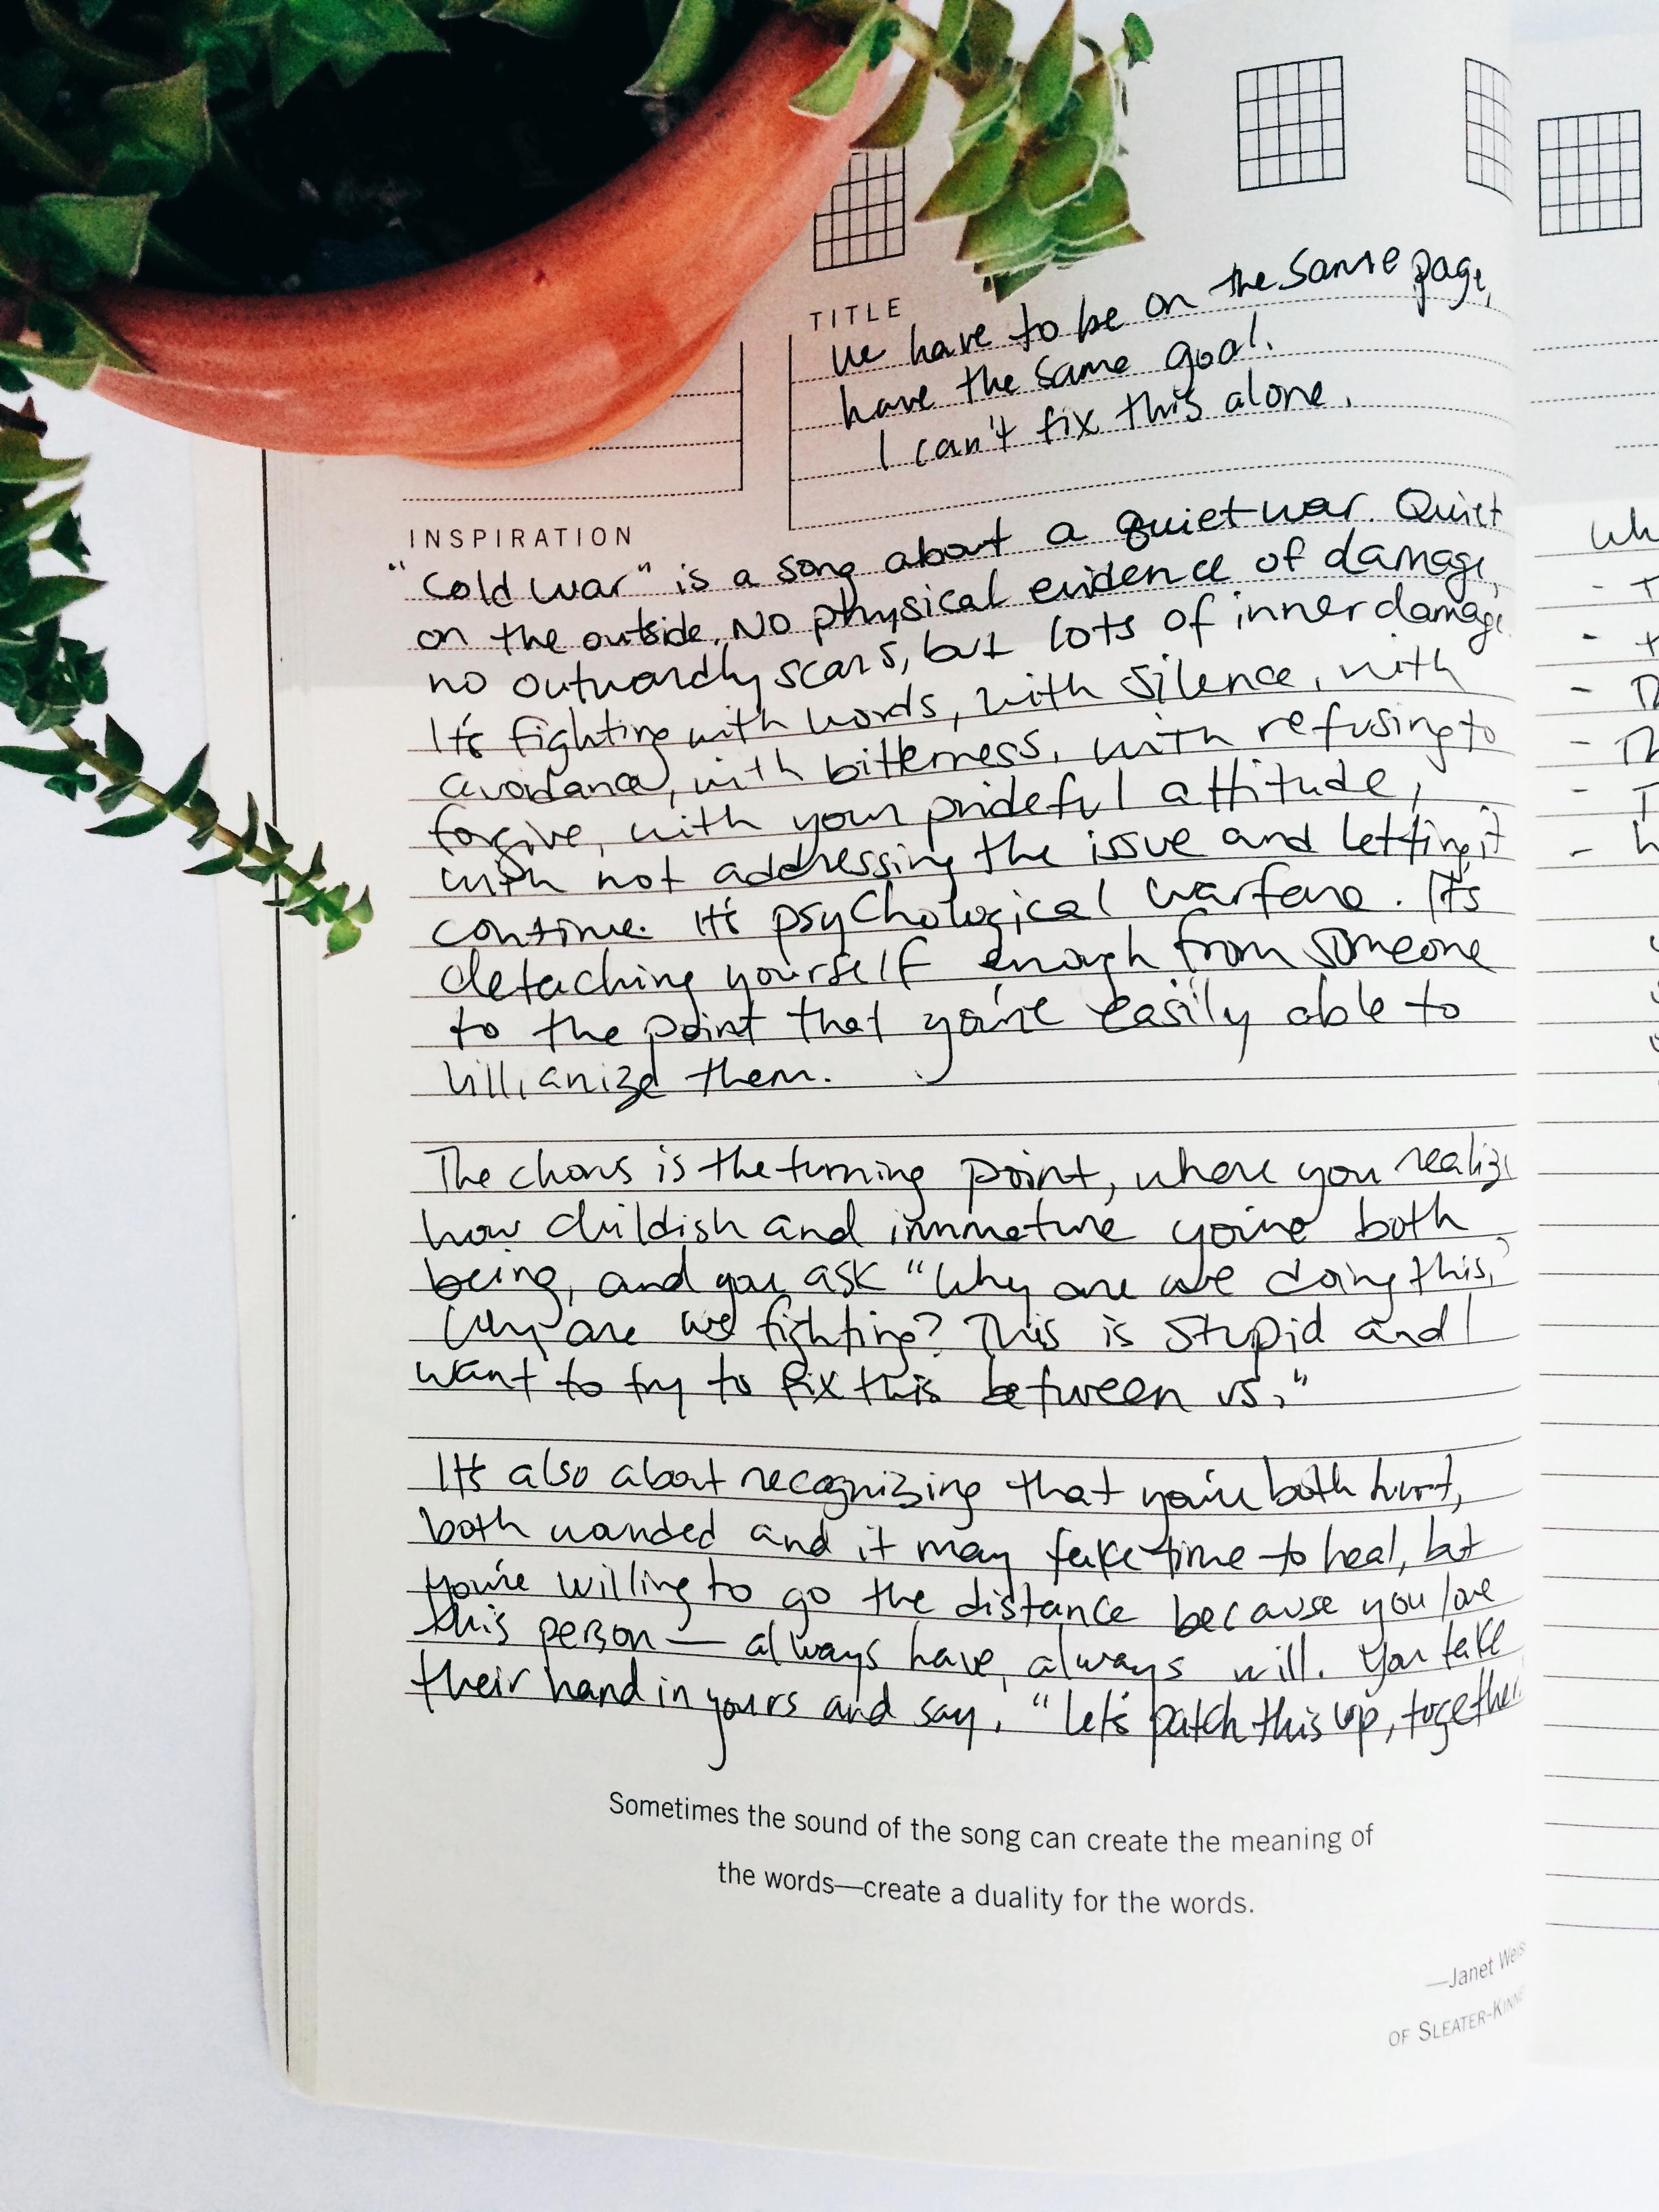 TITLE
We have to be on the same page,
have the same goal.
I can't fix this alone.
INSPIRATION
"Cold War" is a song about a quiet war. Quiet
on the outside. No physical evidence of damage,
no outwardly scars, but lots of inner damage.
It's fighting with words, with silence, with
avoidance, with bitterness, with refusing to
forgive, with your prideful attitude,
with not addressing the issue and letting it
continue. It's psychological warfare. It's
detaching yourself enough from someone
to the point that you're easily able to
villianize them.
The chorus is the turning point, where you realize
how childish and immature you're both
being, and you ask "Why are we doing this?
Why are we fighting? This is stupid and I
want to try to fix this between us."
It's also about recognizing that you're both hurt,
both wounded and it may take time to heal, but
you're willing to go the distance because you love
this person — always have, always will. You take
their hand in yours and say, "Let's patch this up, together
Sometimes the sound of the song can create the meaning of
the words—create a duality for the words.
—Janet Weis
OF SLEATER-KINNE
Wh
- T
- t
- D
- Th
- T